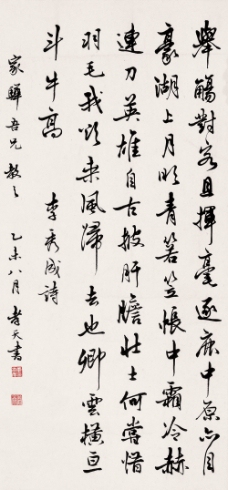 舉觴對客且揮毫逐鹿中原亦自
豪湖上月明青箬笠帳中霜冷赫
連刀英雄自古披肝膽壯士何嘗惜
羽毛我欲乘風歸去也卿雲橫亘
斗牛高　李秀成詩
家驊吾兄教之　乙未八月　孝天書